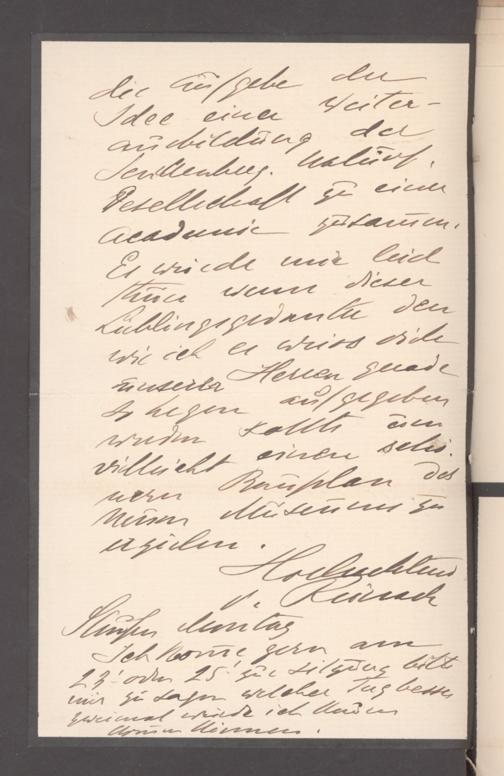 die Aufgabe der
Idee einer Weiter-
ausbildung der
Senckenberg. naturf.
Gesellschaft zu einer
Academie zusamm.
Es würde mir leid
thun wenn dieser
Lieblingsgedanke den
wie ich es weiss viele
unserer Herren gerade
so hegen aufgegeben
werden sollte um
vielleicht einen schö-
nern Bauplan des
neuen Museums zu
erzielen.
Hochachtend
v. Reinach
Montag
Ich komme gern am
23' oder 25' zur Sitzung bitte
mir zu sagen welcher Tag besser
zweimal würde ich kaum
kommen können.